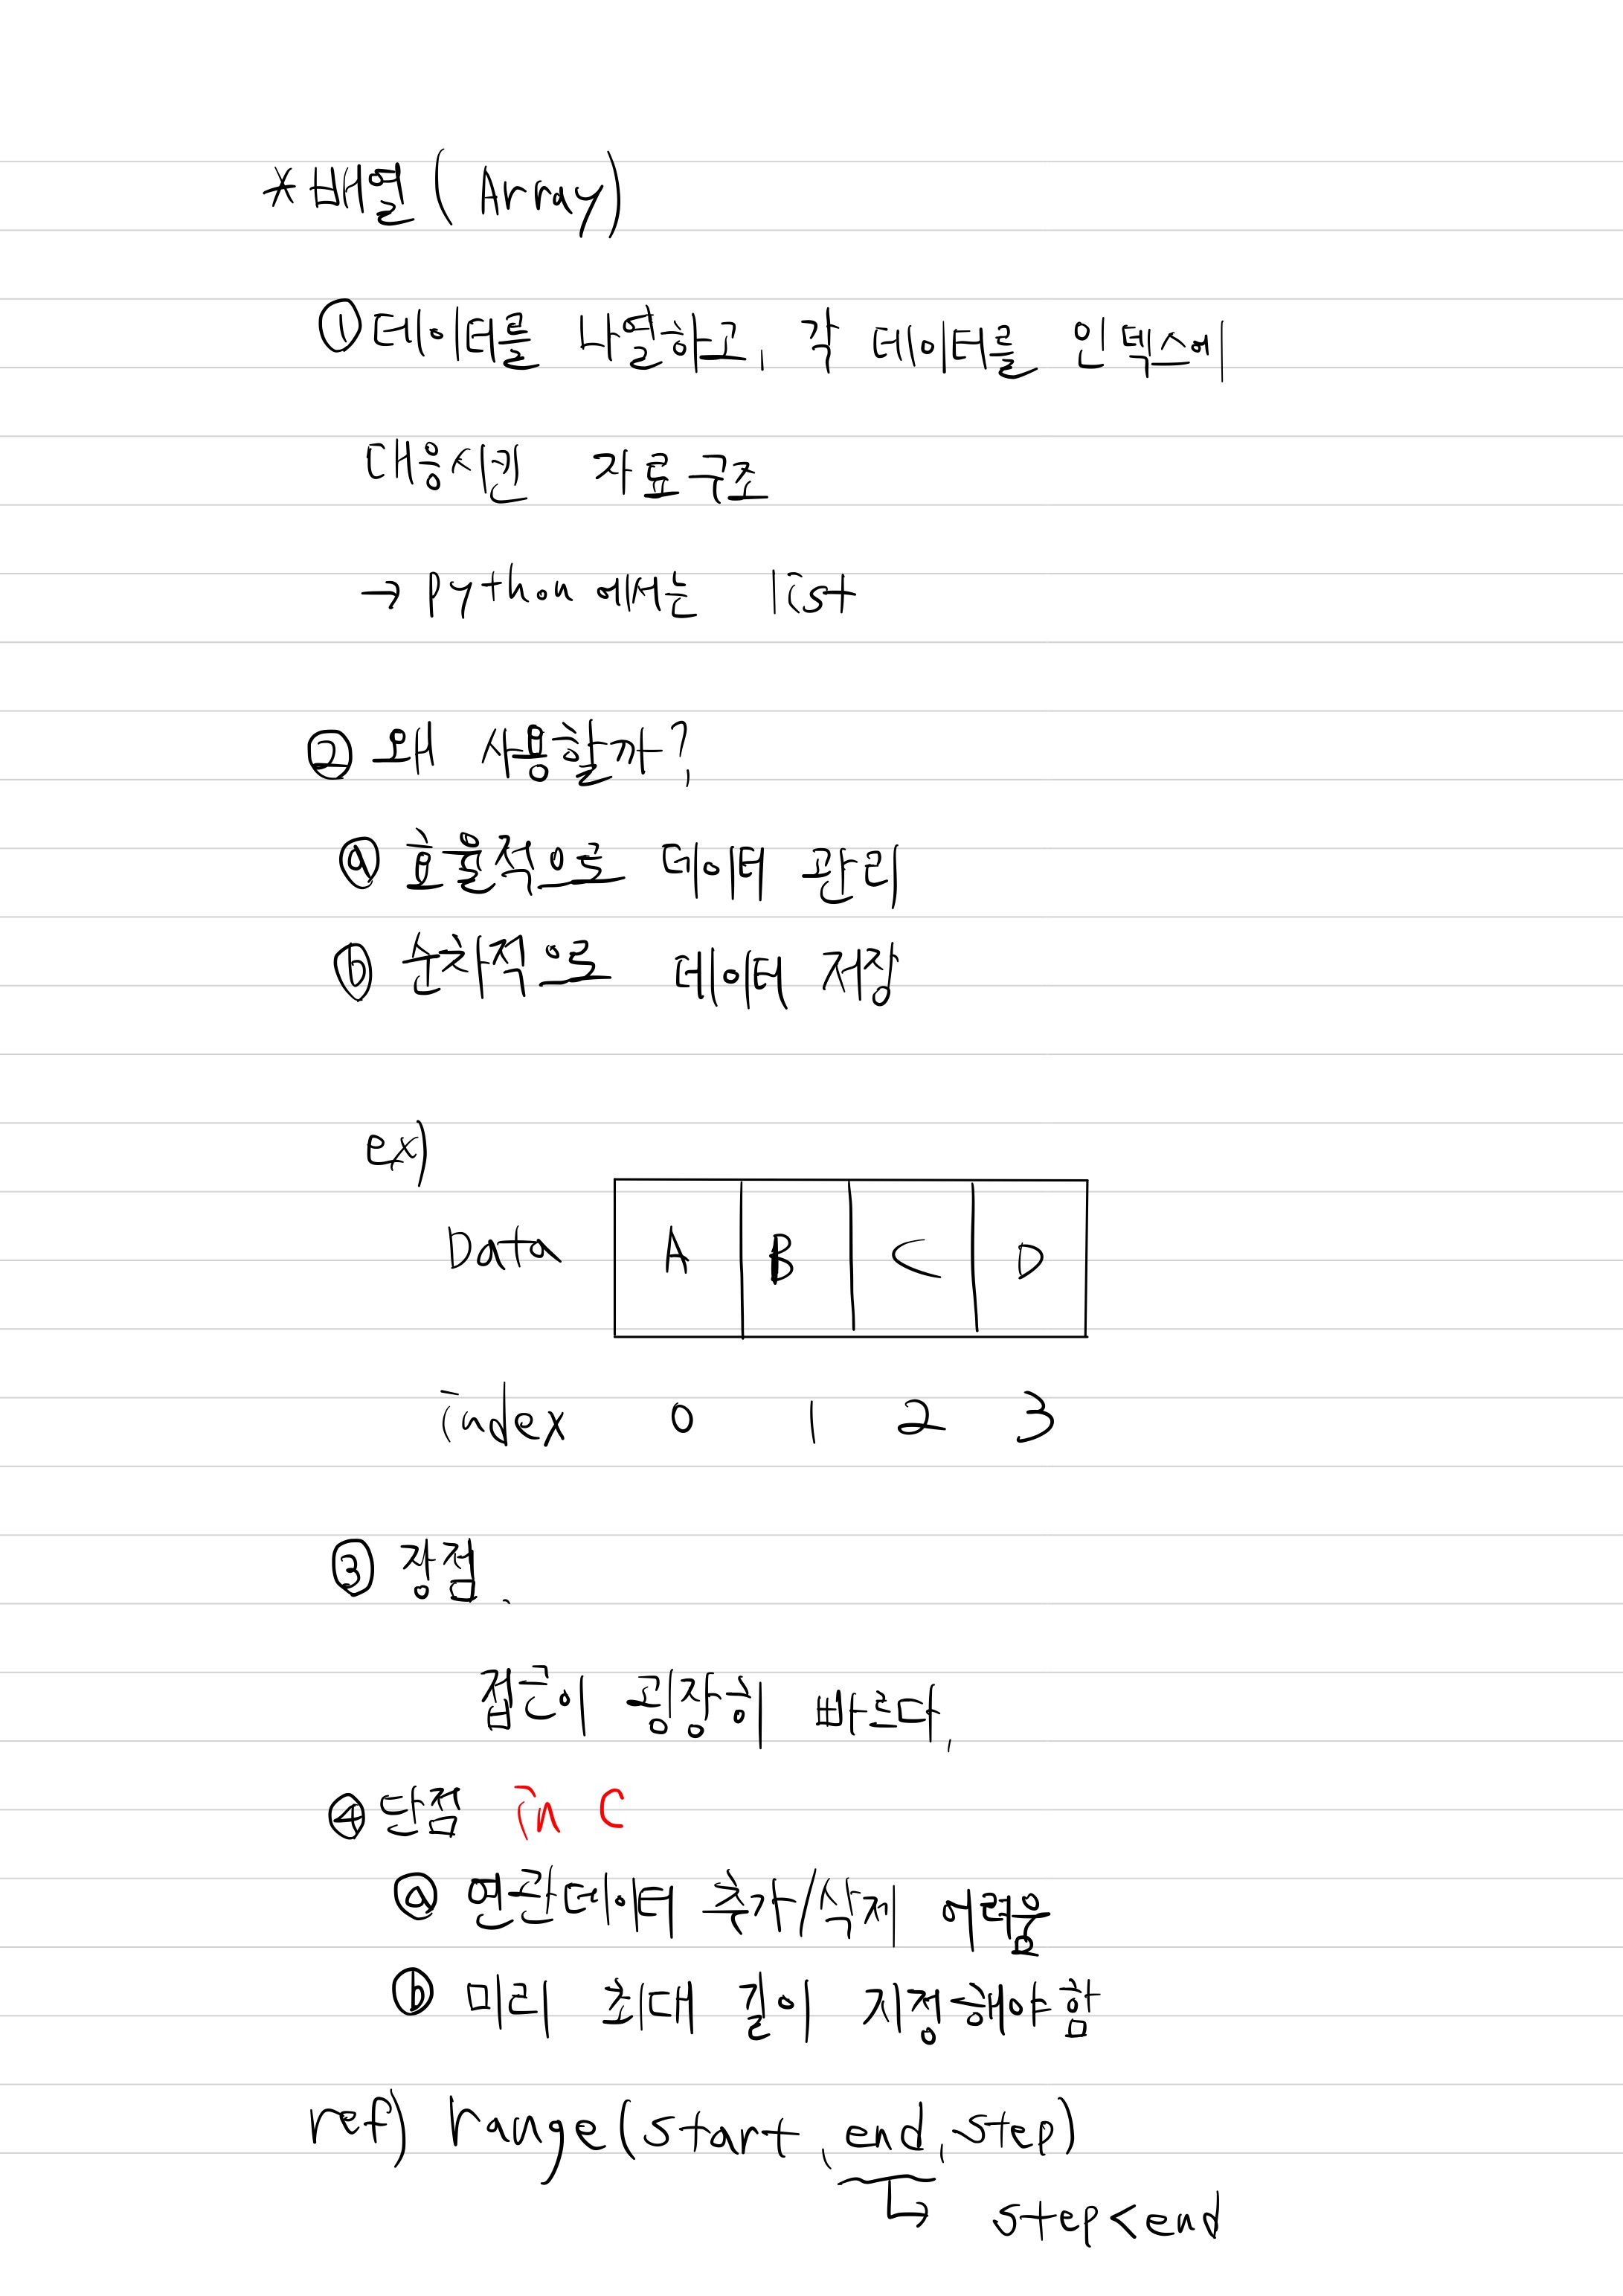 *배열 (Array)
① 데이터를 나열하고, 각 데이터를 인덱스에
대응시킨 자료구조
→ python 에서는 list
② 왜 사용할까?
ⓐ 효율적으로 데이터 관리
ⓑ 순차적으로 데이터 저장
ex)
Data A B C D
index 0 1 2 3
③ 장점.
접근이 굉장히 빠르다.
④ 단점 in C
ⓐ 연관데이터 추가/삭제 어려움
ⓑ 미리 최대 길이 지정해야함
ref) range(start, end, step)
↳ step<end